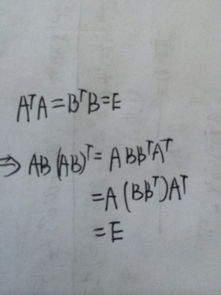 AᵀA=BᵀB=E
⇒ AB(AB)ᵀ= ABBᵀAᵀ
=A(BBᵀ)Aᵀ
=E